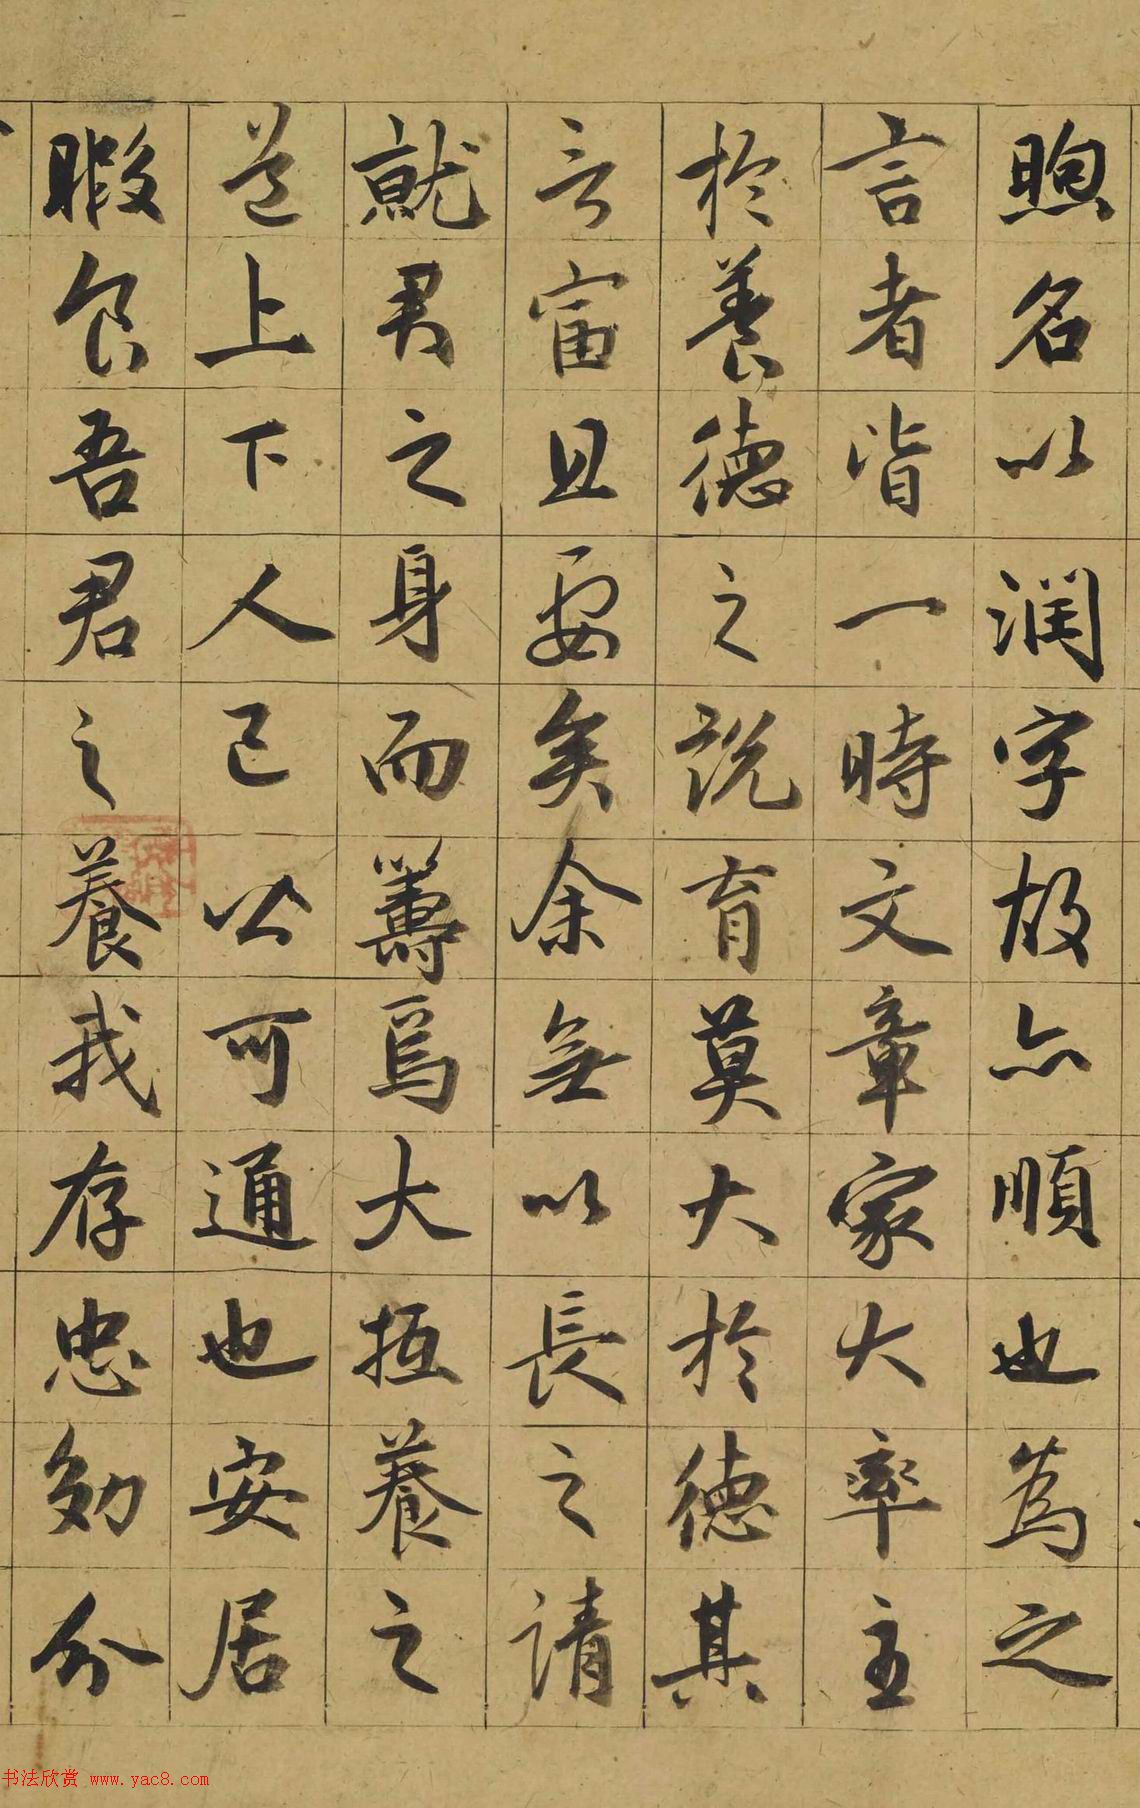 煦名以潤字故亦順也為之
言者皆一時文章家大率主
於養德之說育莫大於德其
言富且要矣余無以長之請
就君之身而籌焉大抵養之
道上下人己公可通也安居
暇食吾君之養我存忠効分
书法欣赏 www.yac8.com